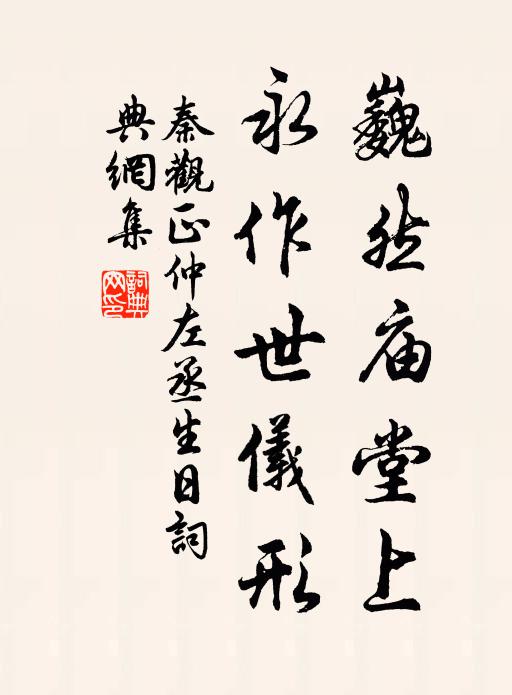 巍然庙堂上
永作世儀形
秦觀正仲左丞生日詞
典網集
詞典网印